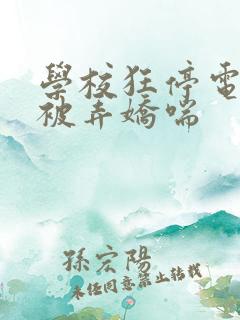 學校狂停電
被弄嬌喘
孫宏陽
未經同意禁止轉載